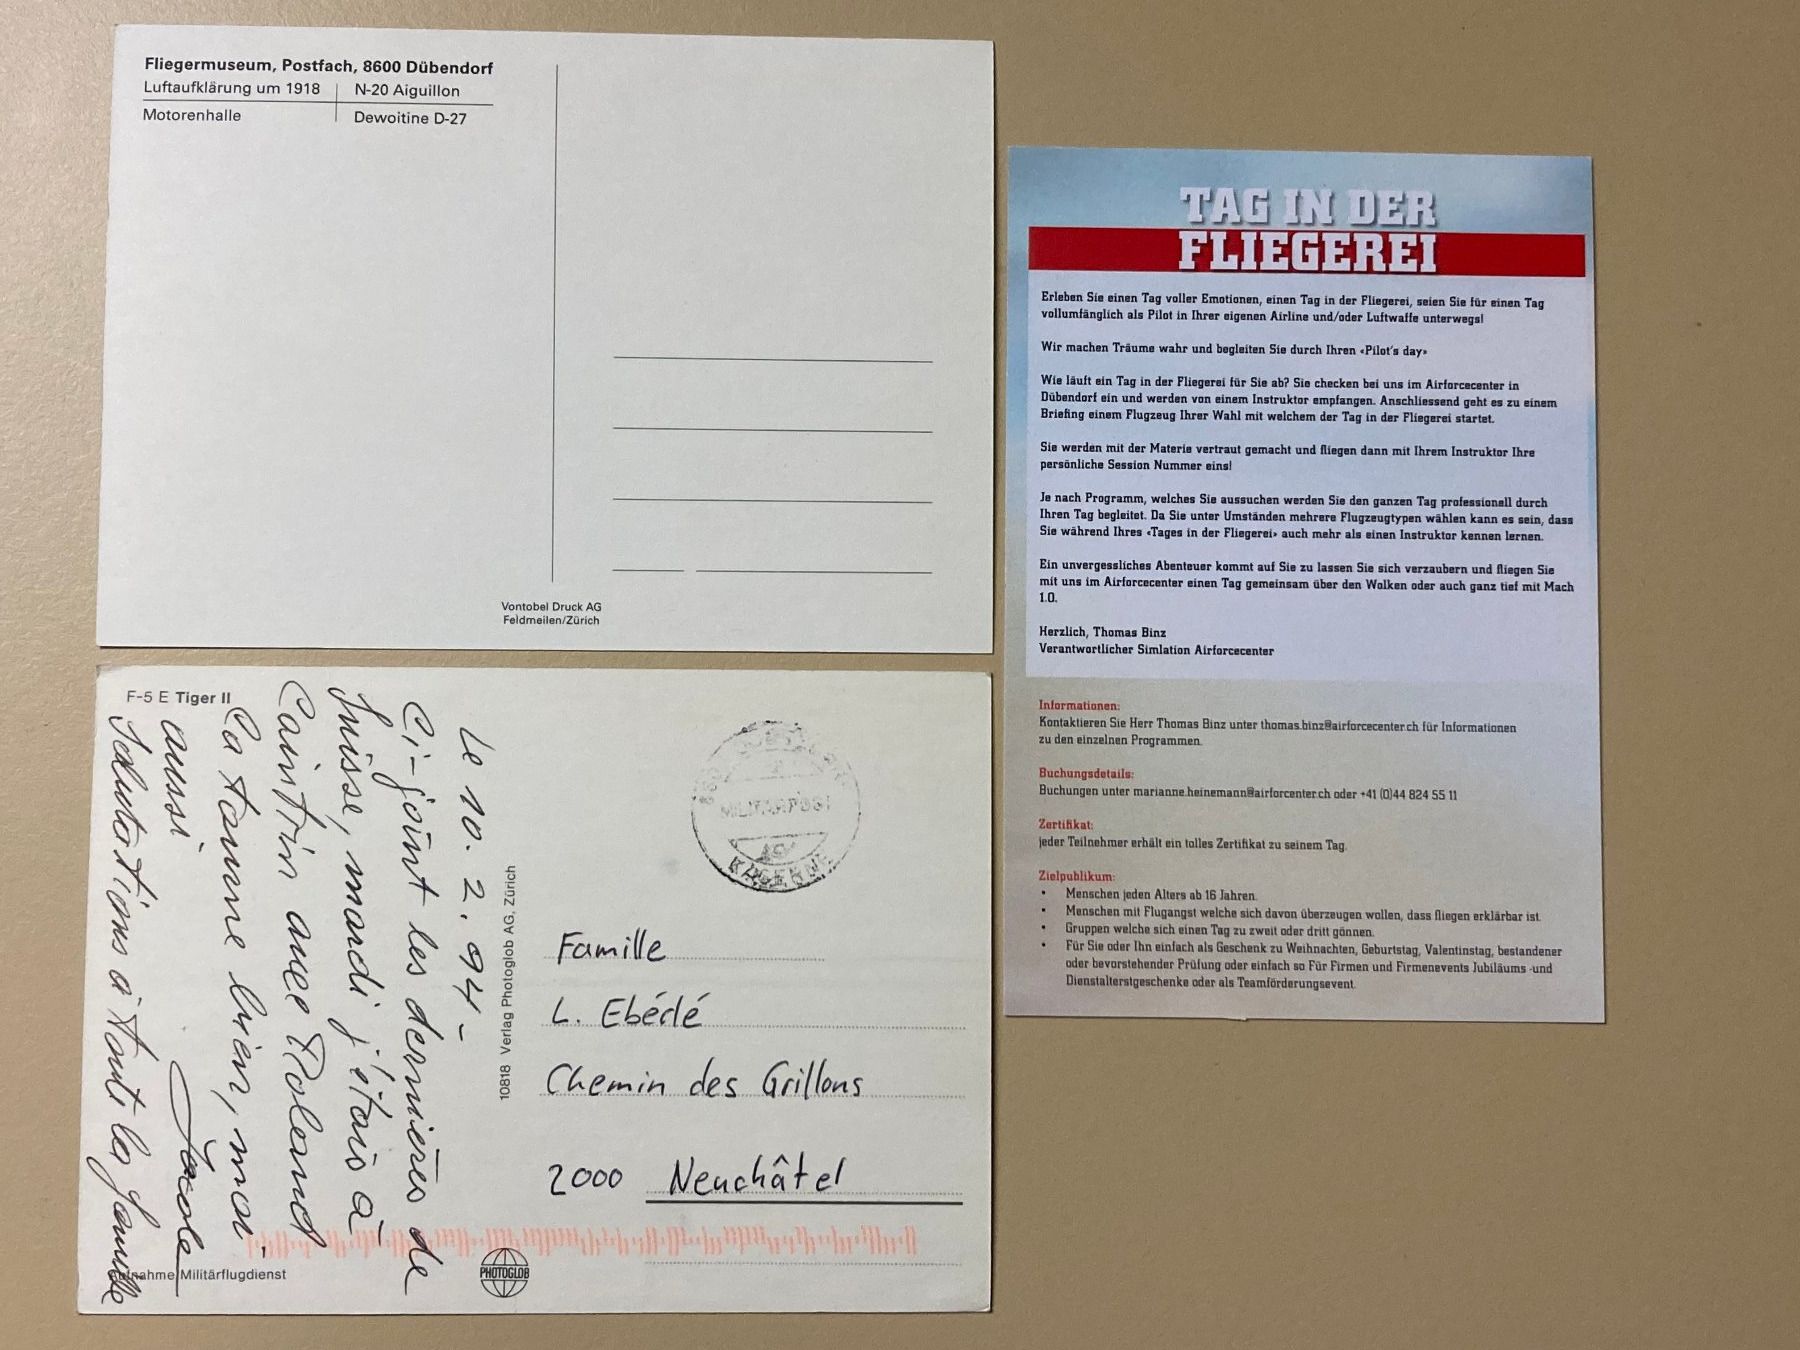 Fliegermuseum, Postfach, 8600 Dübendorf
Luftaufklärung um 1918 N-20 Aiguillon
Motorenhalle Dewoitine D-27
Vontobel Druck AG
Feldmeilen/Zürich
F-5 E Tiger II
Le 10. 2. 94 –
Ci-joint les dernières de
Suisse, mardi j'étais à
Cointrin avec Roland
Ca tourne bien, moi
aussi
Salutations à toute la famille
10818 Verlag Photoglob AG, Zürich
MILITÄRPOST
KASERNE
Famille
L. Ebérlé
Chemin des Grillons
2000 Neuchâtel
Aufnahme Militärflugdienst
PHOTOGLOB
TAG IN DER
FLIEGEREI
Erleben Sie einen Tag voller Emotionen, einen Tag in der Fliegerei, seien Sie für einen Tag
vollumfänglich als Pilot in Ihrer eigenen Airline und/oder Luftwaffe unterwegs!
Wir machen Träume wahr und begleiten Sie durch Ihren «Pilot's day»
Wie läuft ein Tag in der Fliegerei für Sie ab? Sie checken bei uns im Airforcecenter in
Dübendorf ein und werden von einem Instruktor empfangen. Anschliessend geht es zu einem
Briefing einem Flugzeug Ihrer Wahl mit welchem der Tag in der Fliegerei startet.
Sie werden mit der Materie vertraut gemacht und fliegen dann mit Ihrem Instruktor Ihre
persönliche Session Nummer eins!
Je nach Programm, welches Sie aussuchen werden Sie den ganzen Tag professionell durch
Ihren Tag begleitet. Da Sie unter Umständen mehrere Flugzeugtypen wählen kann es sein, dass
Sie während Ihres «Tages in der Fliegerei» auch mehr als einen Instruktor kennen lernen.
Ein unvergessliches Abenteuer kommt auf Sie zu lassen Sie sich verzaubern und fliegen Sie
mit uns im Airforcecenter einen Tag gemeinsam über den Wolken oder auch ganz tief mit Mach
1.0.
Herzlich, Thomas Binz
Verantwortlicher Simlation Airforcecenter
Informationen:
Kontaktieren Sie Herr Thomas Binz unter thomas.binz@airforcecenter.ch für Informationen
zu den einzelnen Programmen.
Buchungsdetails:
Buchungen unter marianne.heinemann@airforcenter.ch oder +41 (0)44 824 55 11
Zertifikat:
jeder Teilnehmer erhält ein tolles Zertifikat zu seinem Tag.
Zielpublikum:
• Menschen jeden Alters ab 16 Jahren.
• Menschen mit Flugangst welche sich davon überzeugen wollen, dass fliegen erklärbar ist.
• Gruppen welche sich einen Tag zu zweit oder dritt gönnen.
• Für Sie oder Ihn einfach als Geschenk zu Weihnachten, Geburtstag, Valentinstag, bestandener
oder bevorstehender Prüfung oder einfach so Für Firmen und Firmenevents Jubiläums -und
Dienstalterstgeschenke oder als Teamförderungsevent.